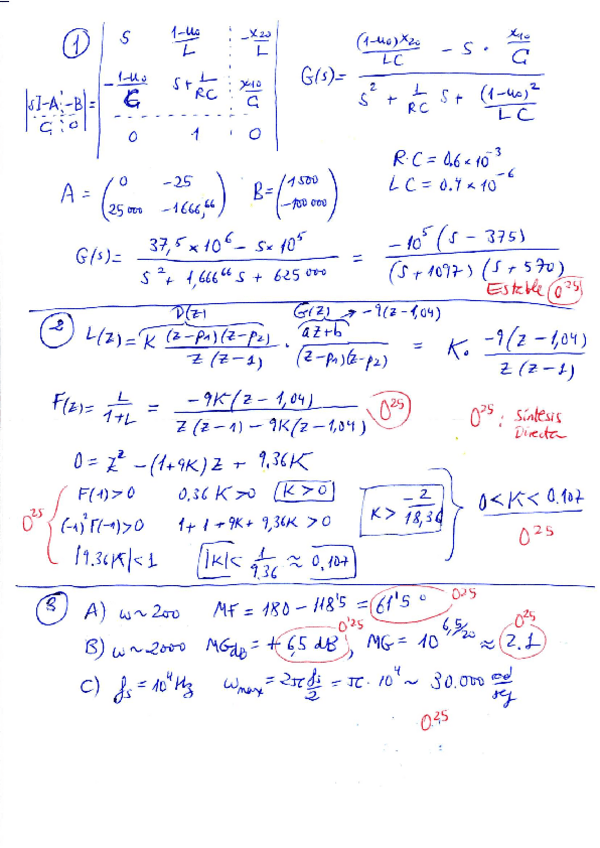 ① |sI-A -B / C 0| = | s (1-u₀)/L -x₂₀/L ; -(1-u₀)/C s+1/RC x₁₀/C ; 0 1 0 |
G(s)= ((1-u₀)x₂₀/LC - s · x₁₀/C) / (s² + 1/RC s + (1-u₀)²/LC)
R·C = 0.6×10⁻³
L C = 0.4×10⁻⁶
A = (0 -25 ; 25000 -1666,⁶⁶) B = (1500 ; -100000)
G(s)= (37,5×10⁶ - s×10⁵) / (s² + 1,666⁶⁶ s + 625000) = -10⁵(s - 375) / ((s+1097)(s+570))
Estable 0²⁵
② L(z)= K (z-p₁)(z-p₂) / z(z-1) · az+b / (z-p₁)(z-p₂) = K · -9(z-1,04) / z(z-1)
D(z) G(z) → -9(z-1,04)
F(z)= L/(1+L) = -9K(z-1,04) / (z(z-1) - 9K(z-1,04)) 0²⁵
0²⁵ : Síntesis
Directa
0 = z² - (1+9K)z + 9.36K
0²⁵ F(1)>0 0,36K>0 K>0
(-1)²F(-1)>0 1+1+9K+9,36K>0 K> -2/18,36
|9.36K|<1 |K|< 1/9.36 ≈ 0,107
0<K<0.107
0²⁵
③ A) ω~200 MF = 180-118'5 = 61'5° 0.25
B) ω~2000 MG dB = +6,5 dB, 0'25 MG = 10^(6,5/20) ≈ 2.1 0²⁵
C) fs = 10⁴Hz ωmax = 2π fs/2 = π·10⁴ ~ 30.000 rad/seg
0.25